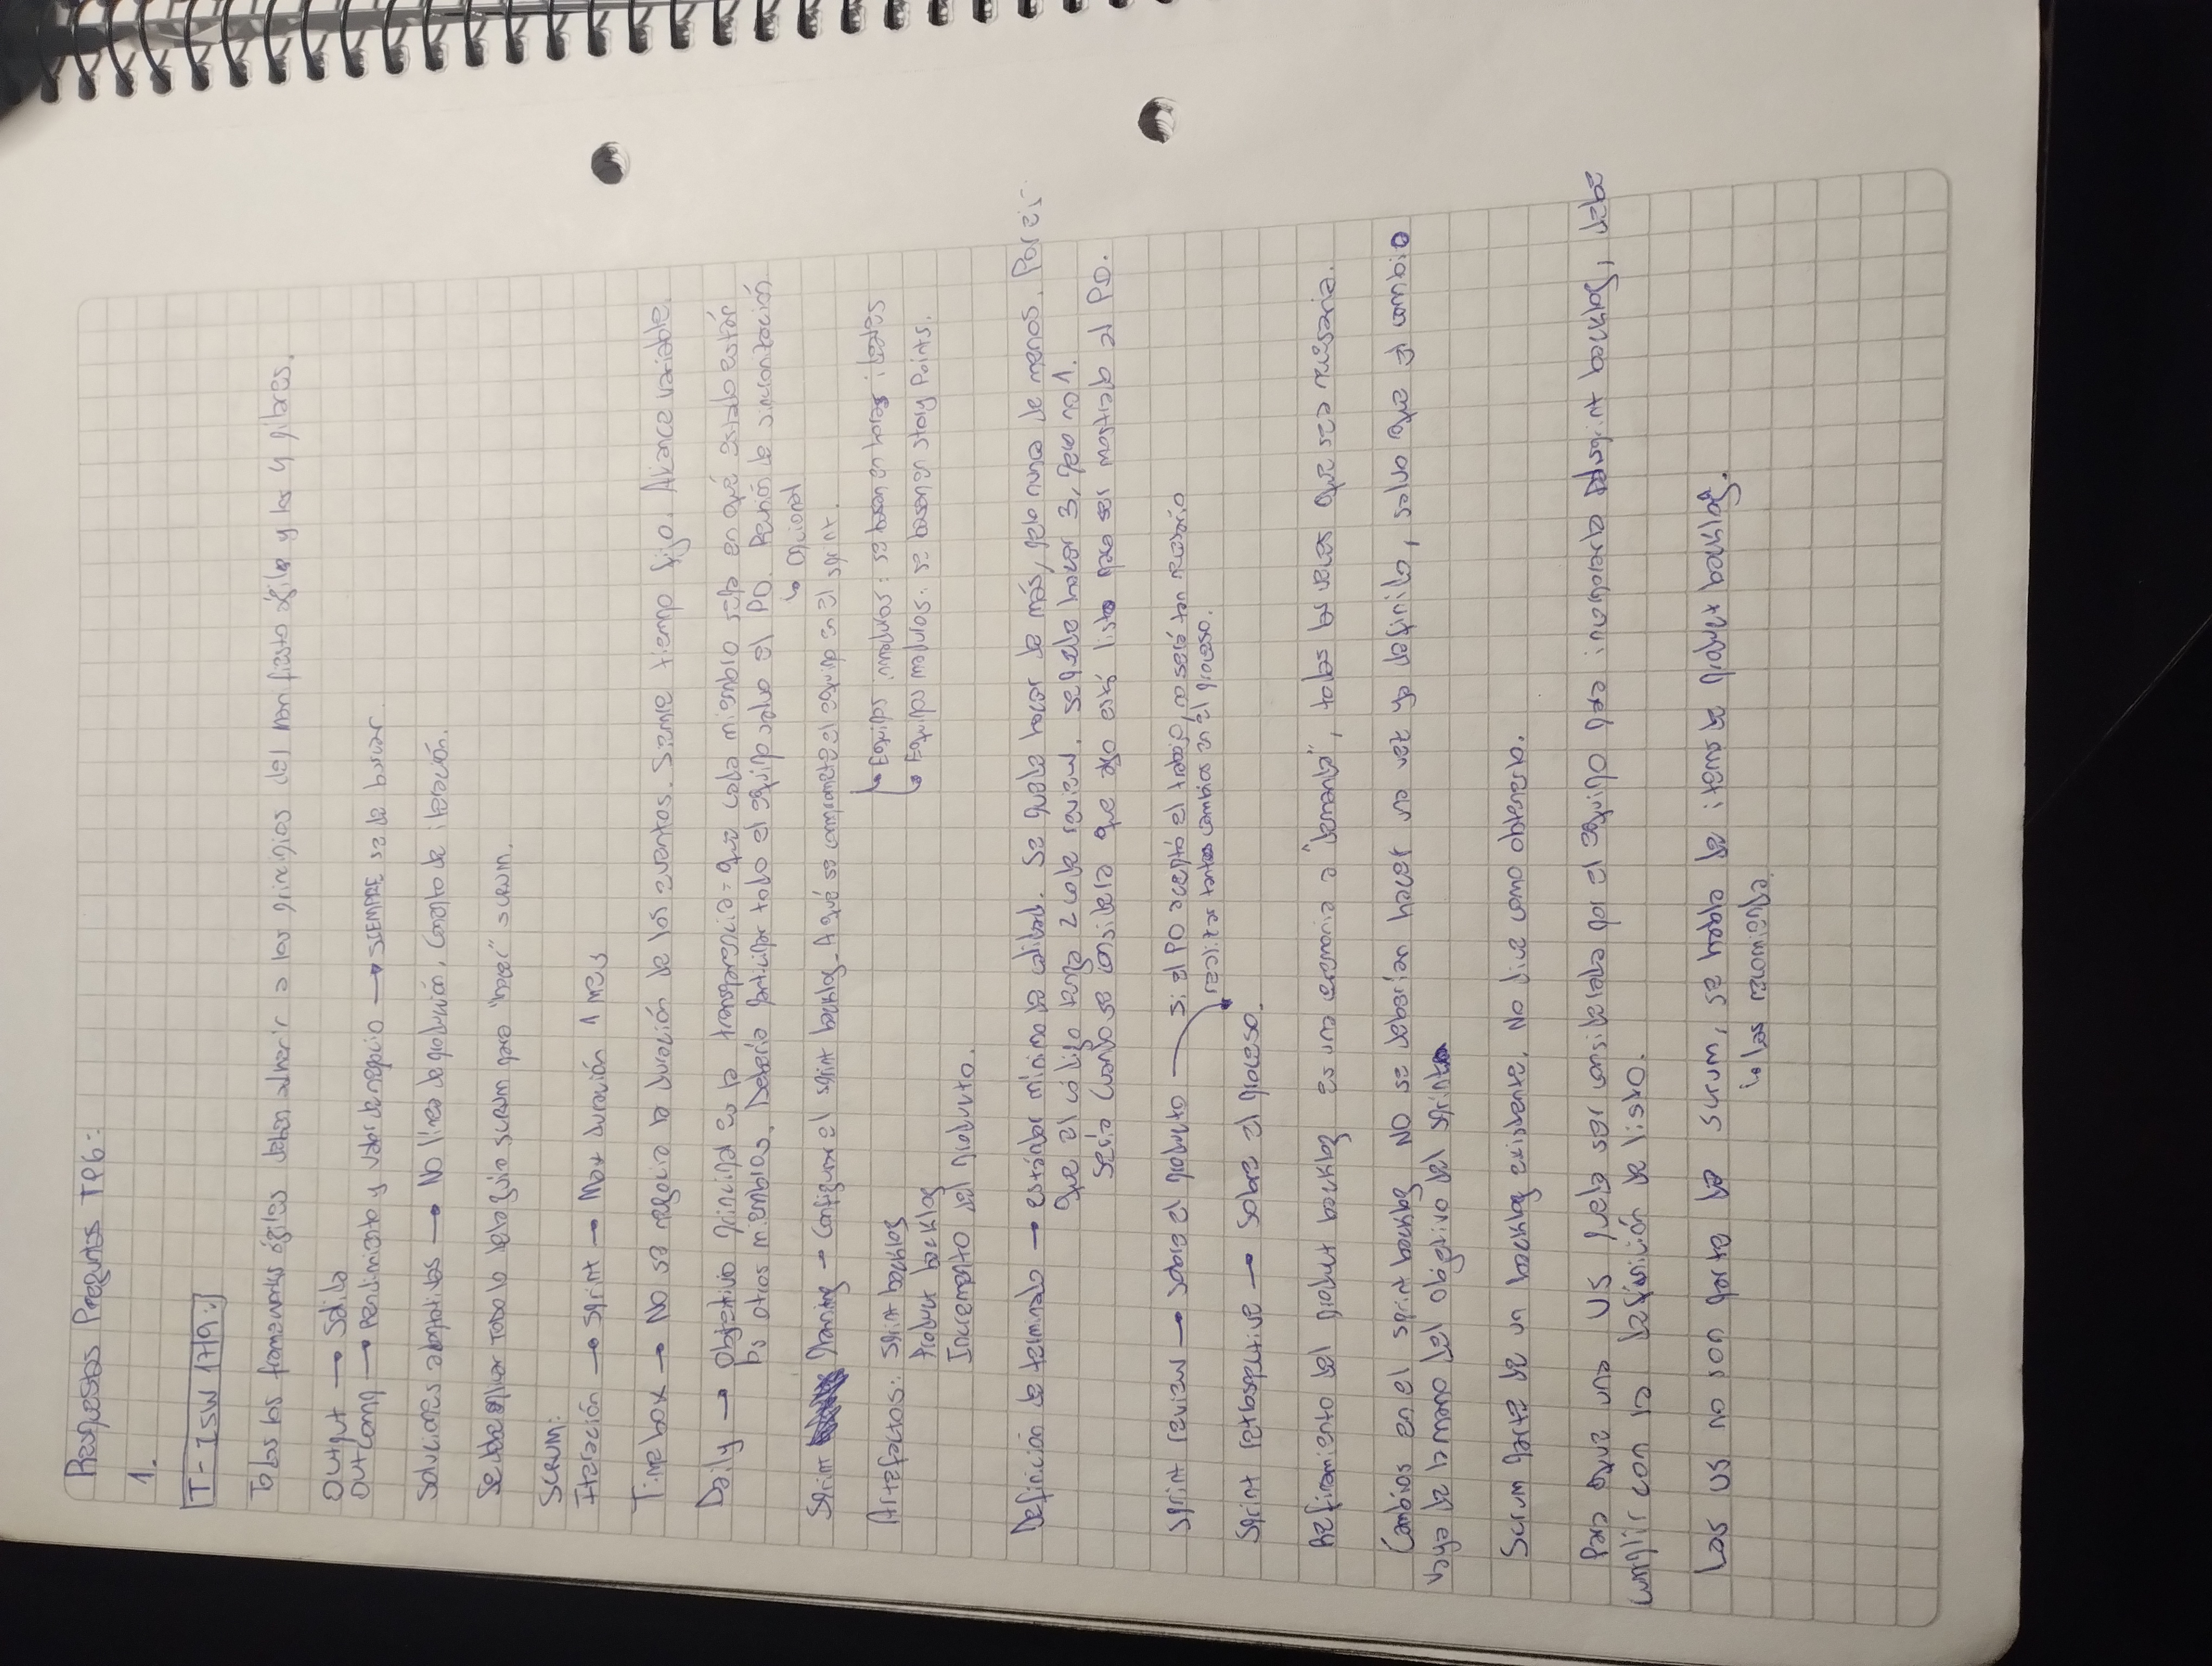 Respuestas Preguntas TP6:
1.
T- ISW 17/9:
Todos los frameworks ágiles deben adherir a los principios del manifiesto ágil y los 4 pilares.
Output → Salida
Outcome → Rendimiento y valor de negocio → SIEMPRE se debe buscar.
Soluciones adaptativas → No línea de producción. Concepto de iteración.
Se debe aplicar TODO lo de la guía SCRUM para "hacer" SCRUM.
SCRUM:
Iteración → Sprint → Max duración 1 mes
Timebox → No se negocia la duración de los eventos. Siempre tiempo fijo. Alcance variable.
Daily → Objetivo principal es la transparencia: que cada miembro sepa en qué estado están
los otros miembros. Debería participar todo el equipo salvo el PO. Reunión de sincronización
↳ Opcional
Sprint Planning → Configurar el sprint backlog. A qué se compromete el equipo en el sprint.
↳ Equipos inmaduros: se basan en horas ideales
↳ Equipos maduros: se basan en story Points.
Artefactos: Sprint backlog
Product backlog
Incremento del producto.
Definición de terminado → estándar mínimo de calidad. Se puede hacer de más, pero nunca de menos. Por ej:
que el código tenga 2 code review. se puede hacer 3, pero no 1.
Sería cuando se considera que algo está listo para ser mostrado al PO.
Sprint review → Sobre el producto → Si el PO aceptó el trabajo, no será tan necesario
realizar tantos cambios en el proceso.
Sprint retrospective → Sobre el proceso.
Refinamiento del product backlog es una ceremonia a "demanda", todas las veces que sea necesaria.
Cambios en el sprint backlog NO se deberían hacer una vez ya definido, salvo que el cambio
vaya de la mano del objetivo del sprint
Scrum parte de un backlog existente. No dice como obtenerlo.
Para que una US pueda ser considerada por el equipo para incorporarla al sprint backlog, debe
cumplir con la definición de listo.
Las US no son parte de scrum, se habla de items de product backlog.
↳ Las recomienda.